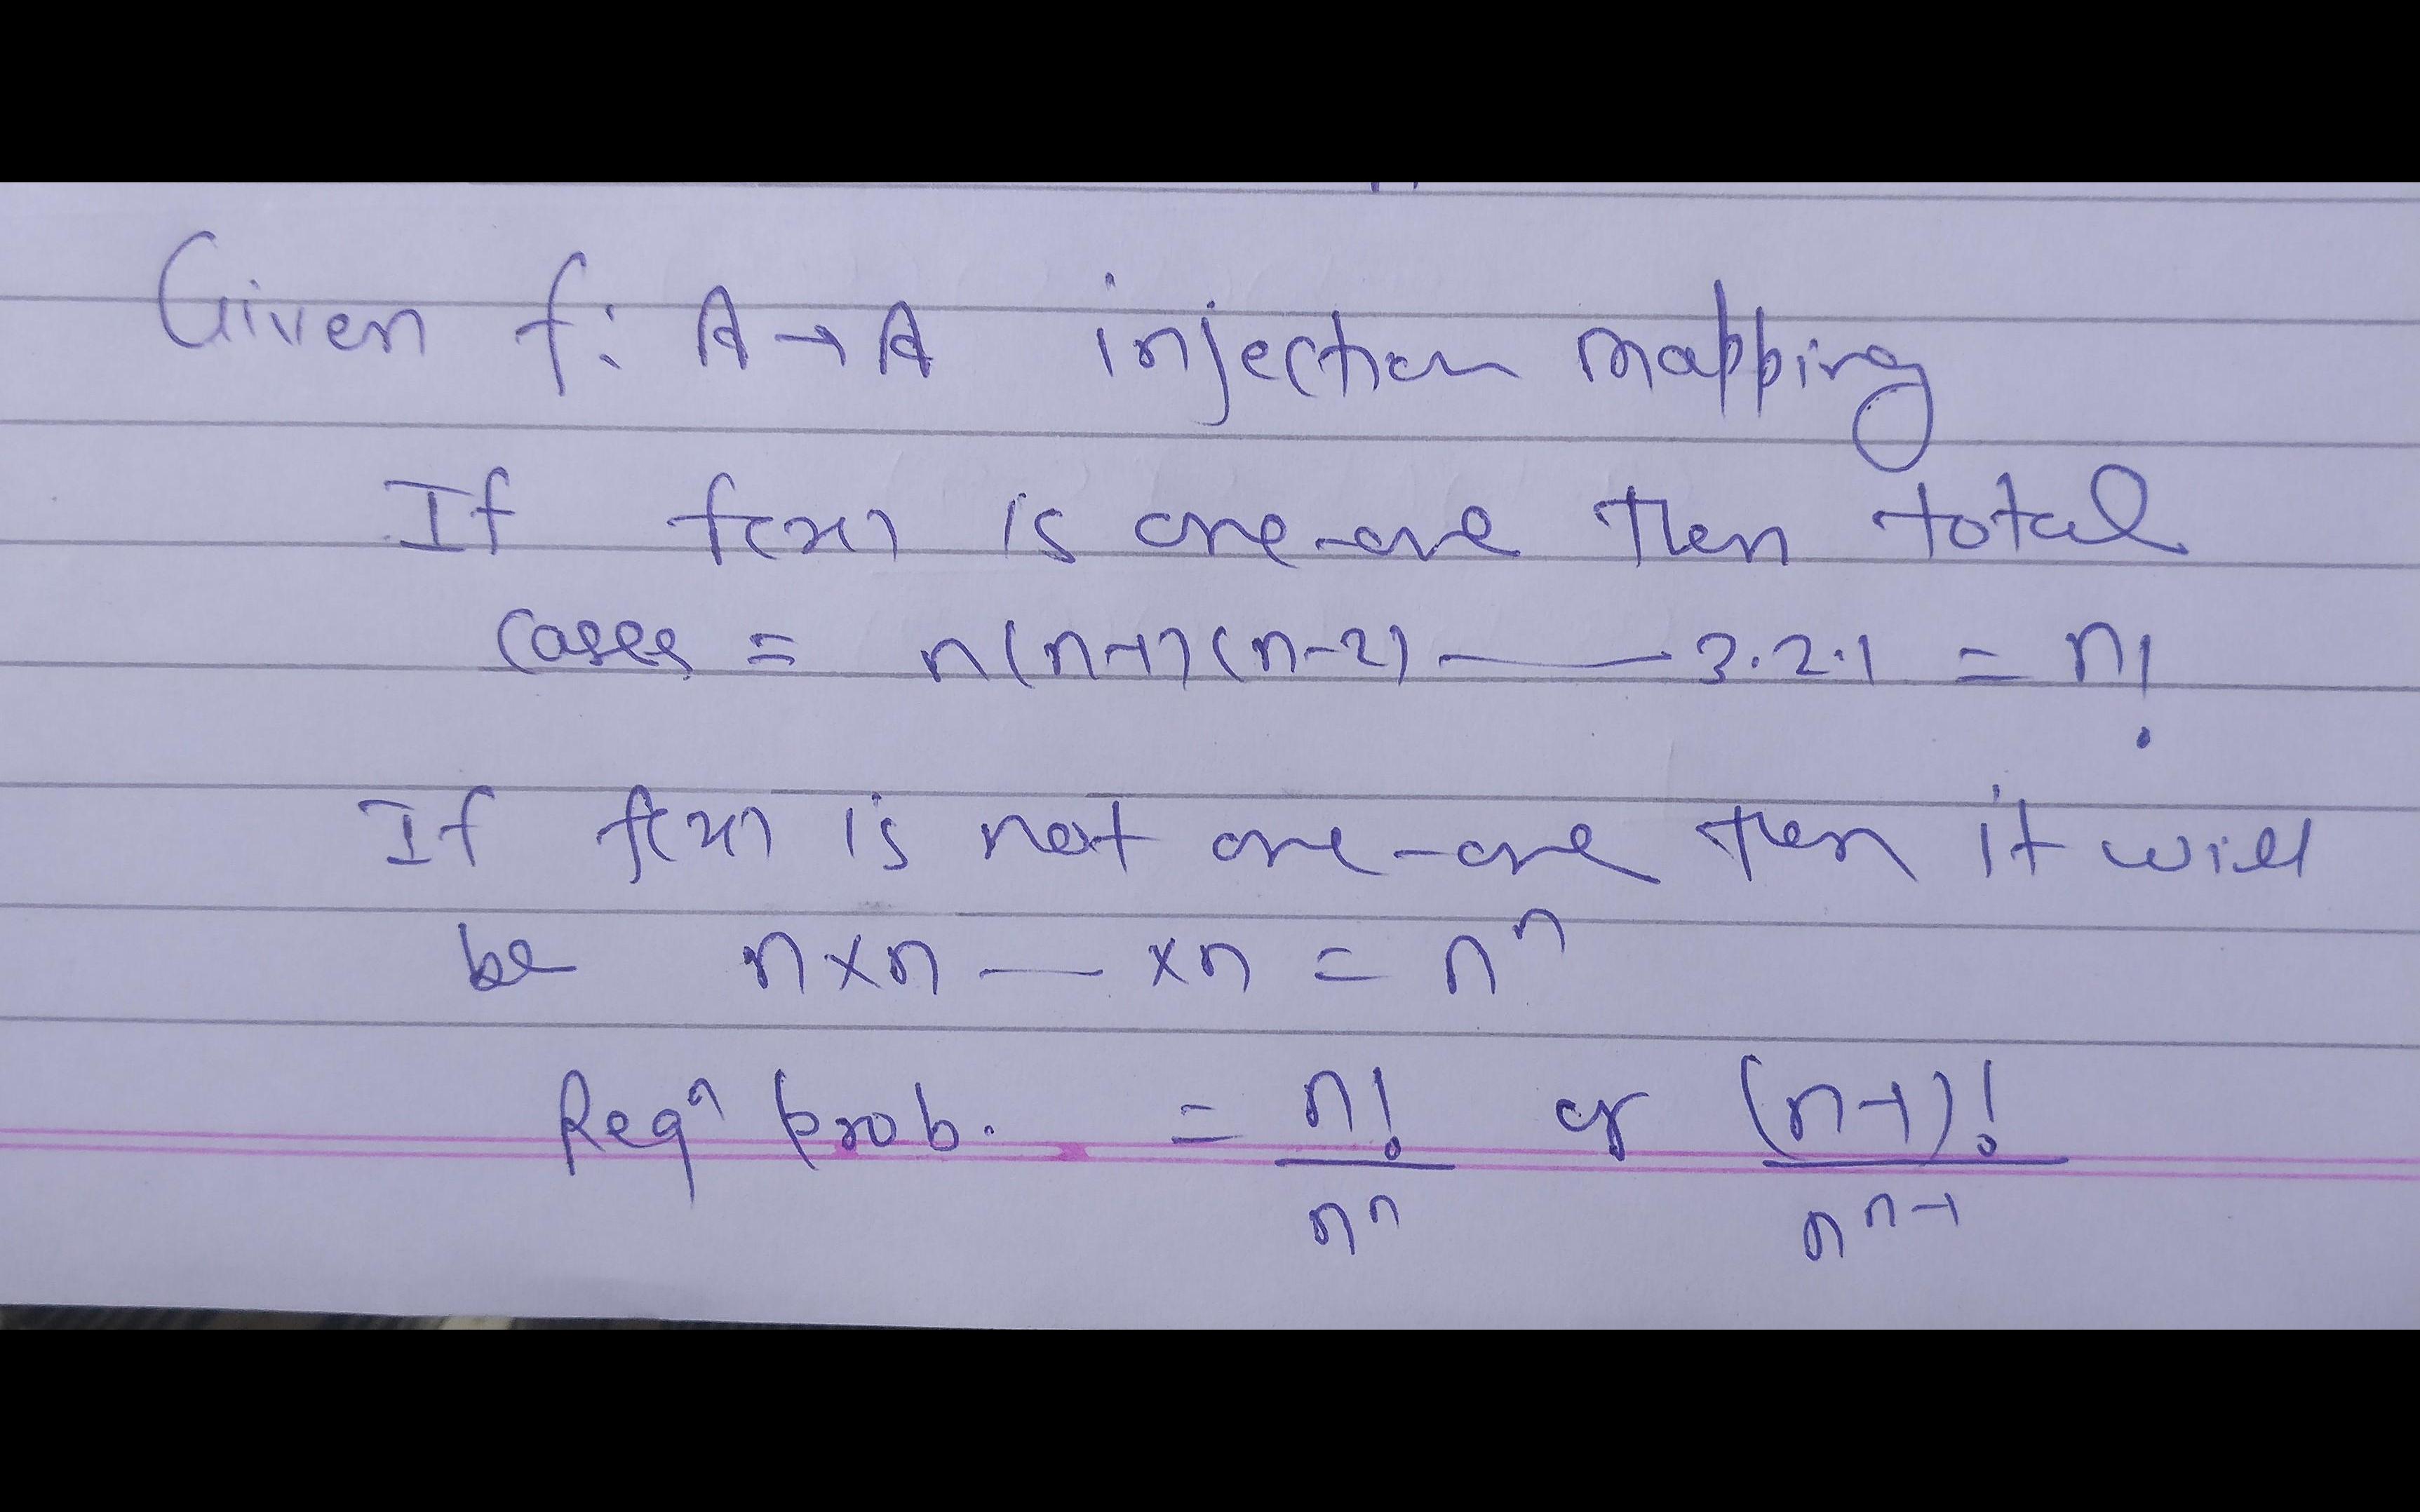 Given f: A → A injection mapping
If f(x) is one-one then total
cases = n(n-1)(n-2) —— 3.2.1 = n!
If f(x) is not one-one then it will
be n×n — ×n = nⁿ
Reqⁿ prob. = n!/nⁿ or (n-1)!/nⁿ⁻¹